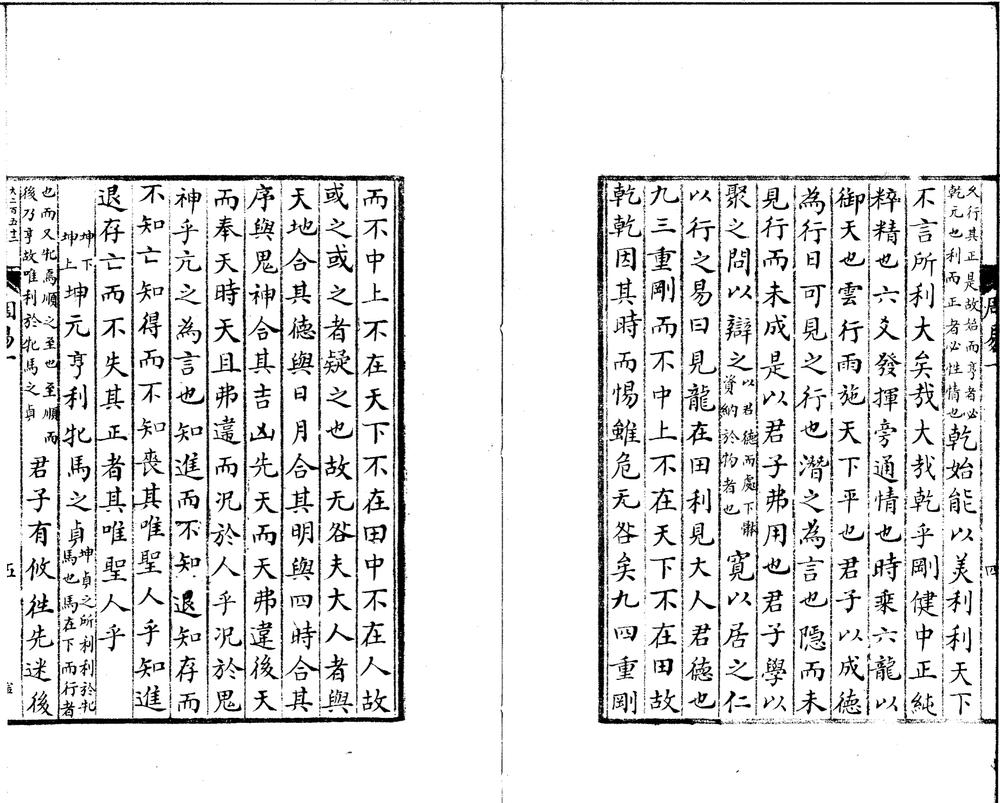 久行其正是故始而亨者必
乾元也利而正者必性情也乾始能以美利利天下
不言所利大矣哉大哉乾乎剛健中正純
粹精也六爻發揮旁通情也時乘六龍以
御天也雲行雨施天下平也君子以成德
為行日可見之行也潛之為言也隱而未
見行而未成是以君子弗用也君子學以
聚之問以辯之以君德而處下體
資納於物者也寬以居之仁
以行之易曰見龍在田利見大人君德也
九三重剛而不中上不在天下不在田故
乾乾因其時而惕雖危无咎矣九四重剛
周易一
四
而不中上不在天下不在田中不在人故
或之或之者疑之也故无咎夫大人者與
天地合其德與日月合其明與四時合其
序與鬼神合其吉凶先天而天弗違後天
而奉天時天且弗違而況於人乎況於鬼
神乎亢之為言也知進而不知退知存而
不知亡知得而不知喪其唯聖人乎知進
退存亡而不失其正者其唯聖人乎
坤下
坤上坤元亨利牝馬之貞坤貞之所利利於牝
馬也馬在下而行者
也而又牝焉順之至也至順而
後乃亨故唯利於牝馬之貞君子有攸往先迷後
周易一
五